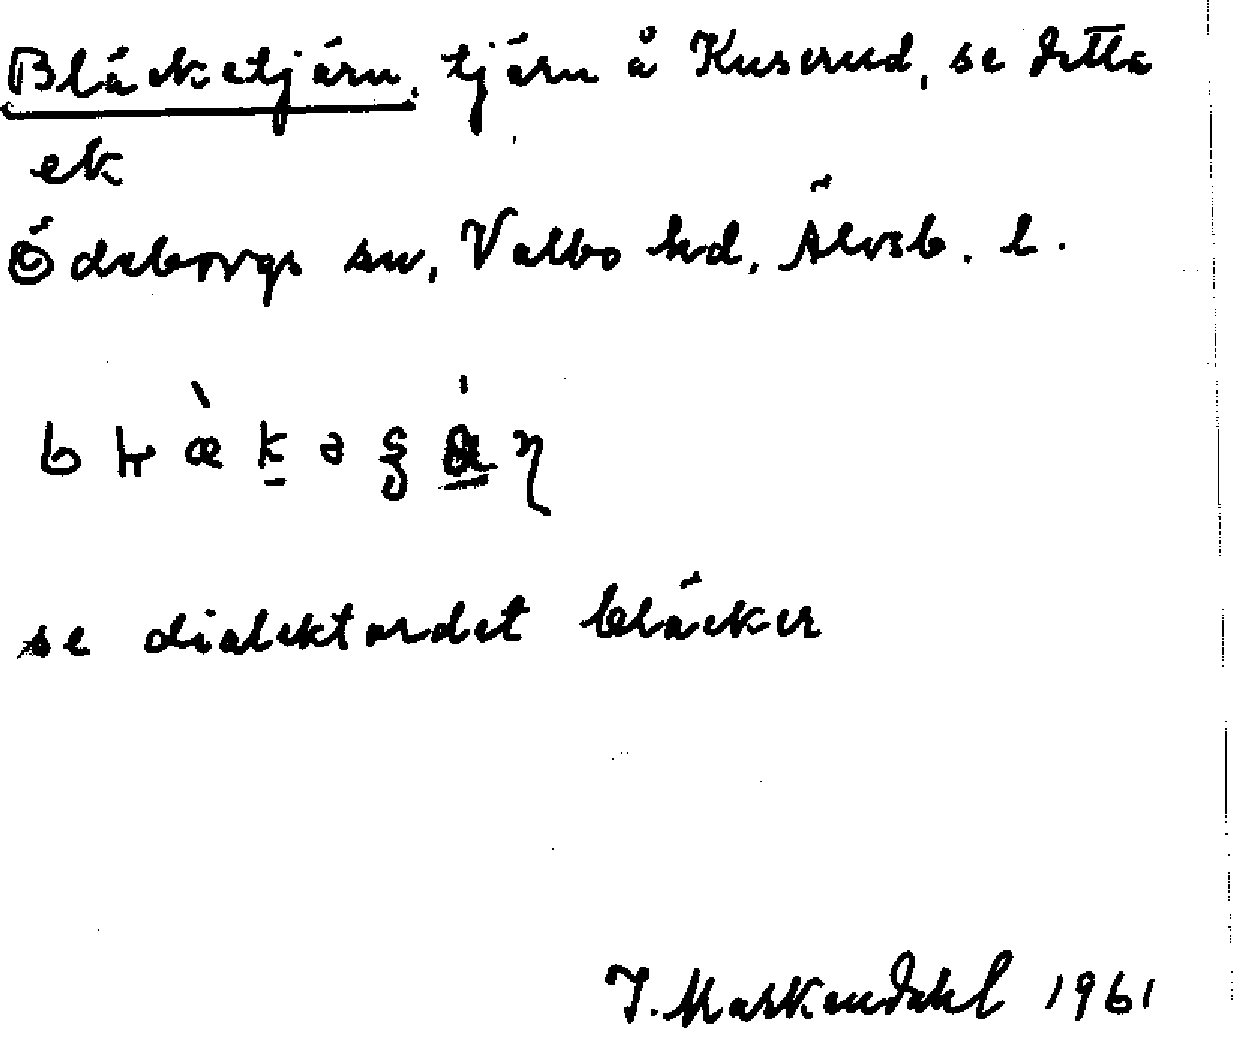 Bläcketjärn, tjärn å Kuserud, se detta
ek
Ödeborgs sn, Valbo hd, Älvsb. l.
se dialektordet bläcker
J. Markendahl 1961